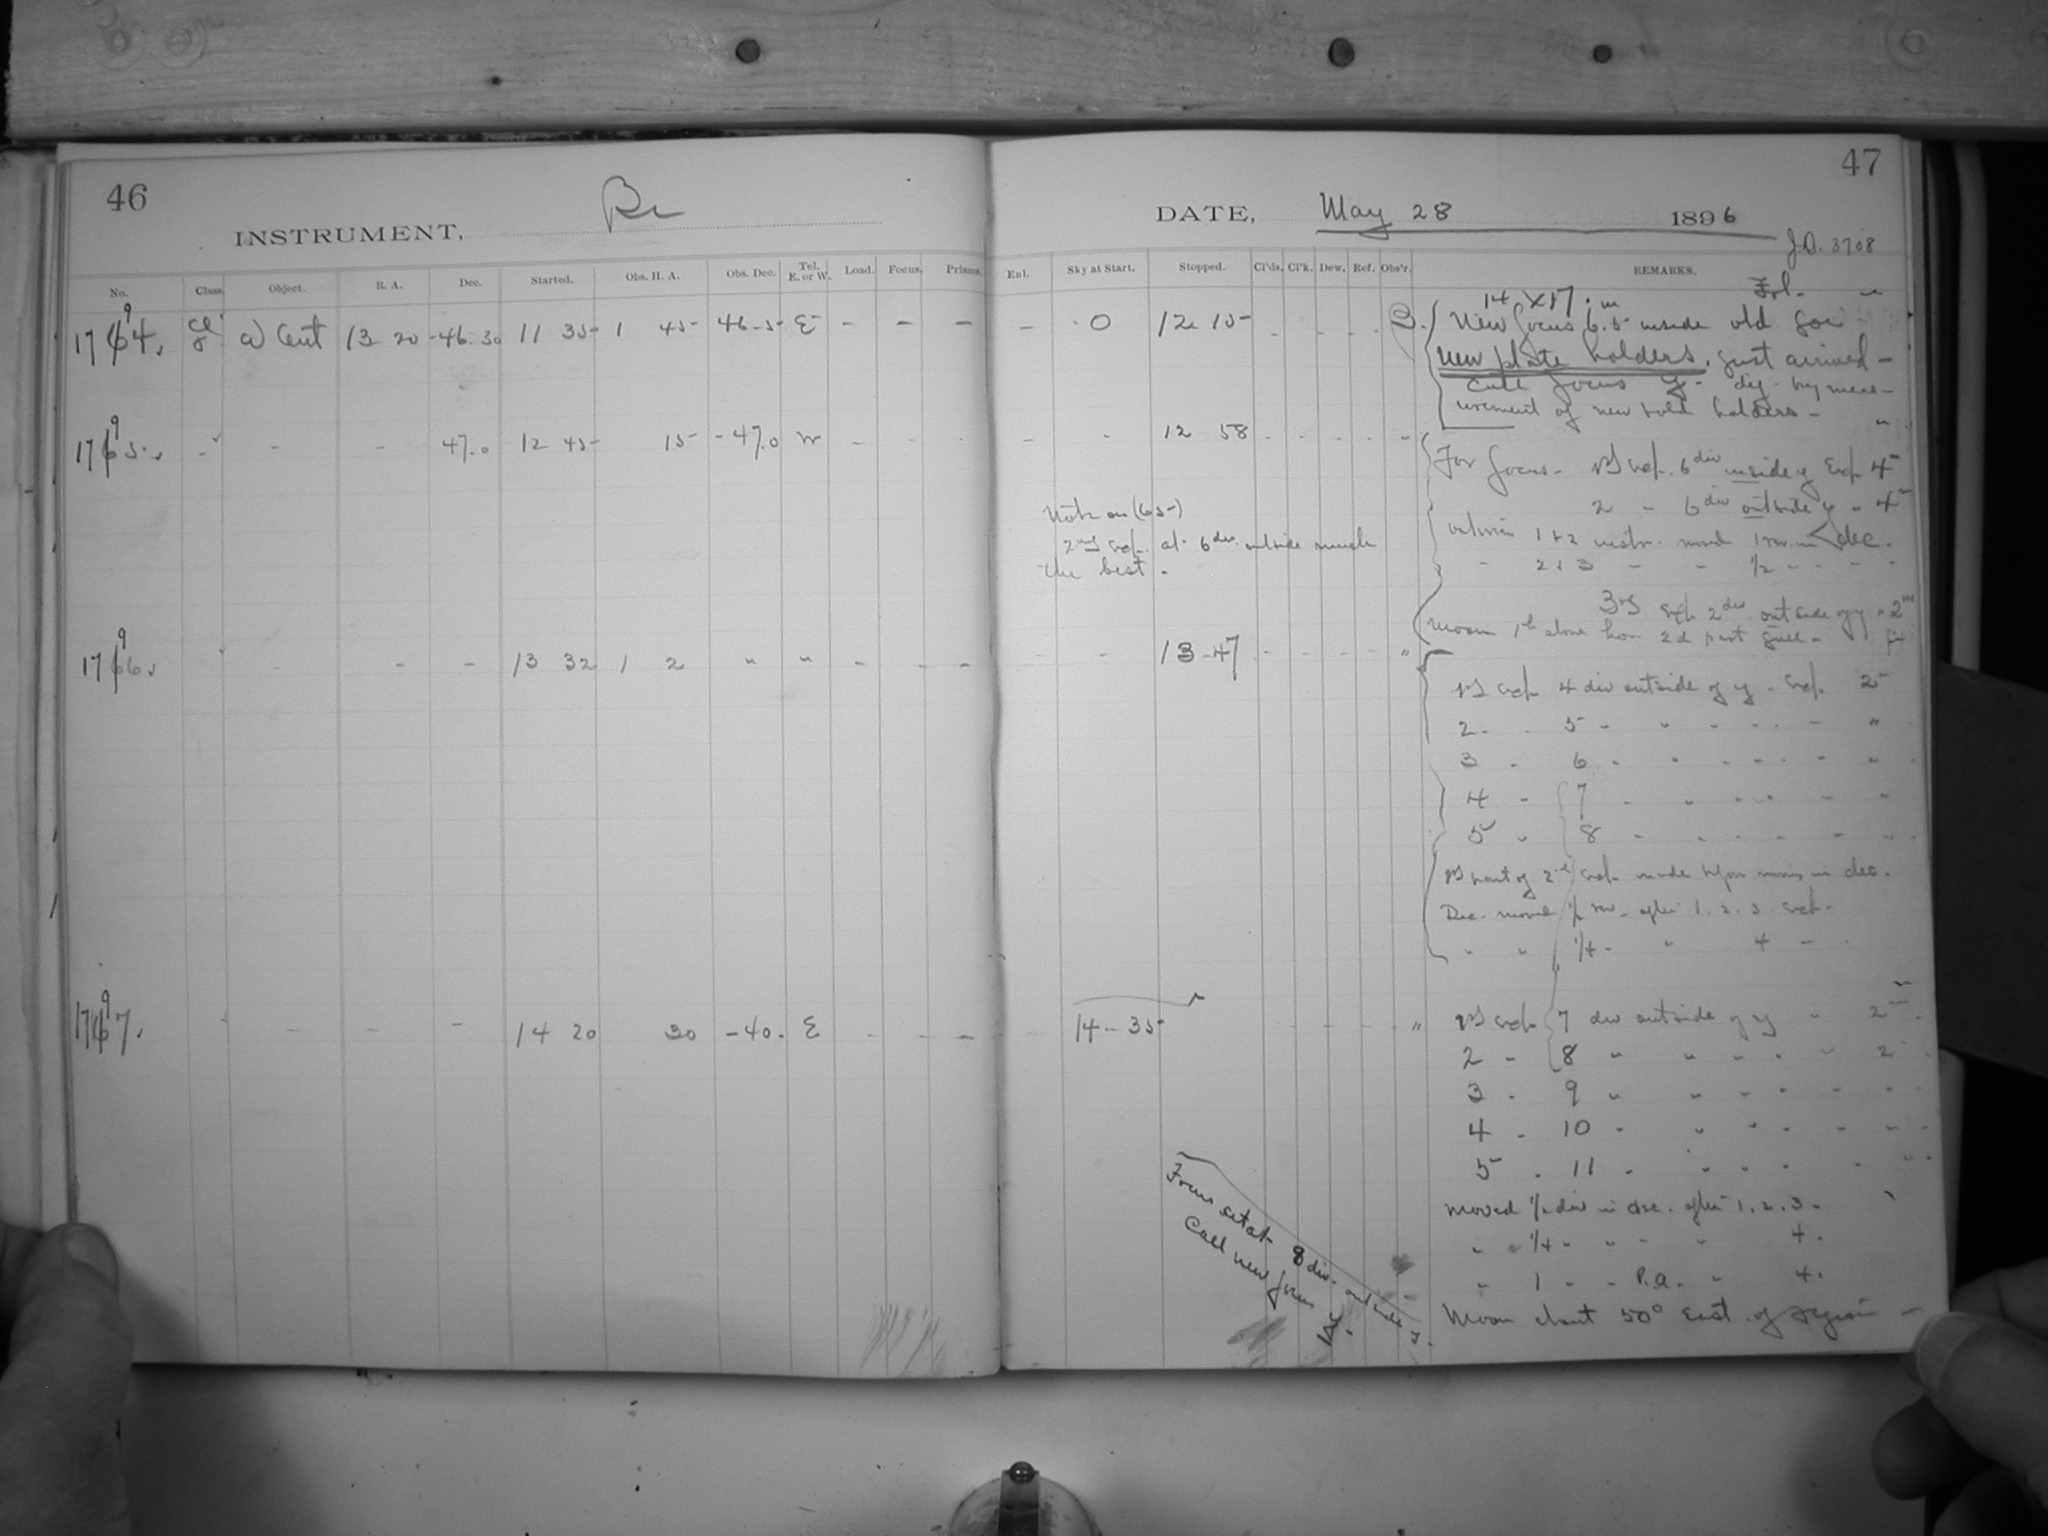 46
INSTRUMENT,
DATE, May 28 1896
47
J.D. 3708
No. Class. Object. R. A. Dec. Started. Obs. H. A. Obs. Dec. Tel. E. or W. Load. Focus. Prisms. Enl. Sky at Start. Stopped. Cl'ds. Cl'k. Dew. Ref. Obs'r. REMARKS.
14 X 17 in
1764. 9 ω Cent 13 20 -46.30 11 35 1 45 46.5 E - - - - 0 12 15 New focus 6.5 inside old
new plate holders, just arrived -
Call focus y - by meas-
urement of new & old holders -
1765. 9 - - - 47.0 12 45 15 -47.0 W - - - - - 12 58 - - - - "
For focus - 1st exp. 6 div inside y Exp 4
2 " 6 div outside y " 4
Note on (65)
2nd exp. at 6 div. outside much
the best -
between 1 & 2 instr. moved 1 in dec.
" 2 & 3 " " 1/2 " " "
3rd exp 2 div outside of y " 2
Moon 1 h above hor. 2 d past full -
1766. 9 - - - 13 32 1 2 " " - - - - - 13 47 - - - - "
1st exp 4 div outside of y - exp. 2
2 - 5 " " " " " "
3 " 6 " " " " " "
4 - 7 " " " " " "
5 " 8 " " " " " "
1st part of 2nd exp. made in dec.
Dec. moved 1/2 rev. after 1. 2. 3 exp.
" " 1/4 " " 4 -
1767. 9 - - - 14 20 30 -40. E - - - - 14 35 - - - - "
1st exp 7 div outside of y " 2
2 " 8 " " " " " 2
3 - 9 " " " " " "
4 - 10 " " " " " "
5 - 11 " " " " " "
Moved 1/2 div in dec. after 1. 2. 3 -
" 1/4 " " " " 4.
" 1 " " R.A. " 4.
Moon about 50° East of region -
Focus set at 8 div. outside y.
Call new focus